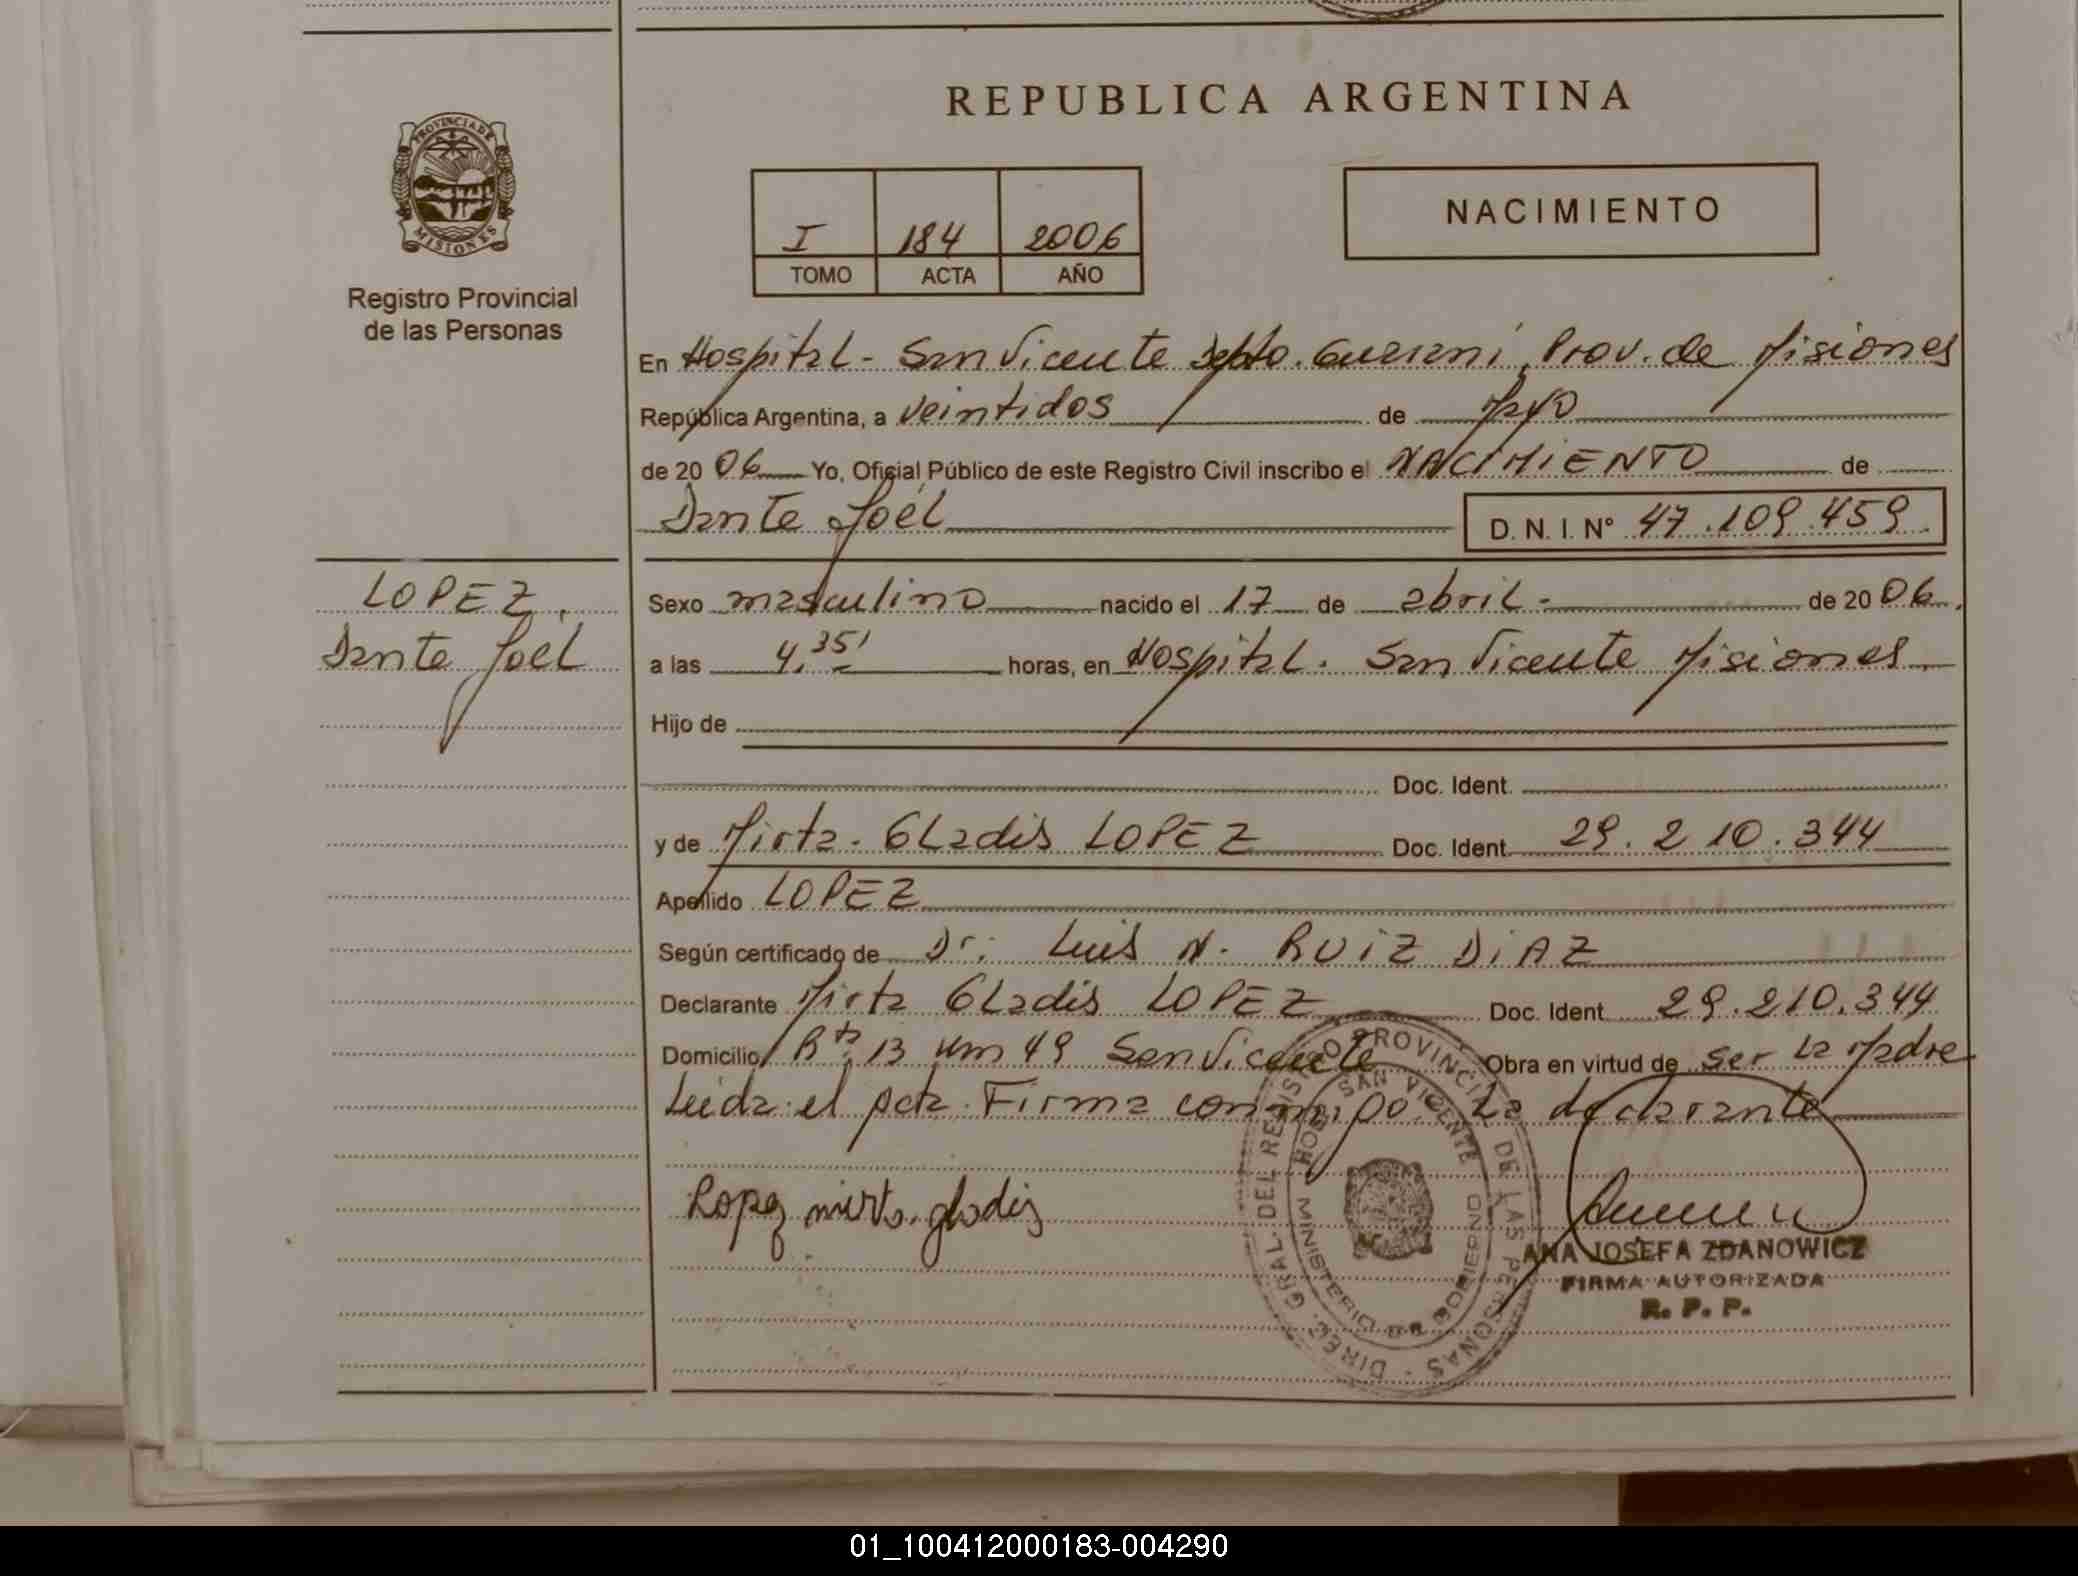 REPUBLICA ARGENTINA
PROVINCIA DE
MISIONES
Registro Provincial
de las Personas
I 184 2006
TOMO ACTA AÑO
NACIMIENTO
En Hospital - San Vicente Depto. Guarani, Prov. de Misiones
República Argentina, a veintidos de Mayo
de 20 06 Yo, Oficial Público de este Registro Civil inscribo el NACIMIENTO de
Dante Joél D. N. I. N° 47.109.459.
LOPEZ,
Dante Joél
Sexo masculino nacido el 17 de abril - de 20 06.
a las 4,35' horas, en Hospital. San Vicente Misiones.
Hijo de
Doc. Ident.
y de Mirta - Gladis LOPEZ Doc. Ident. 29.210.344
Apellido LOPEZ
Según certificado de Dr: Luis N. RUIZ DIAZ
Declarante Mirta Gladis LOPEZ Doc. Ident. 29.210.344
Domicilio Rta. 13 km 49 San Vicente Obra en virtud de ser la Madre
Leida el acta Firma conmigo. La declarante
Lopez mirta gladis
DIREC. GRAL. DEL REGISTRO PROVINCIAL DE LAS PERSONAS
HOSP. SAN VICENTE
MINISTERIO DE GOBIERNO
ANA JOSEFA ZDANOWICZ
FIRMA AUTORIZADA
R. P. P.
01_100412000183-004290